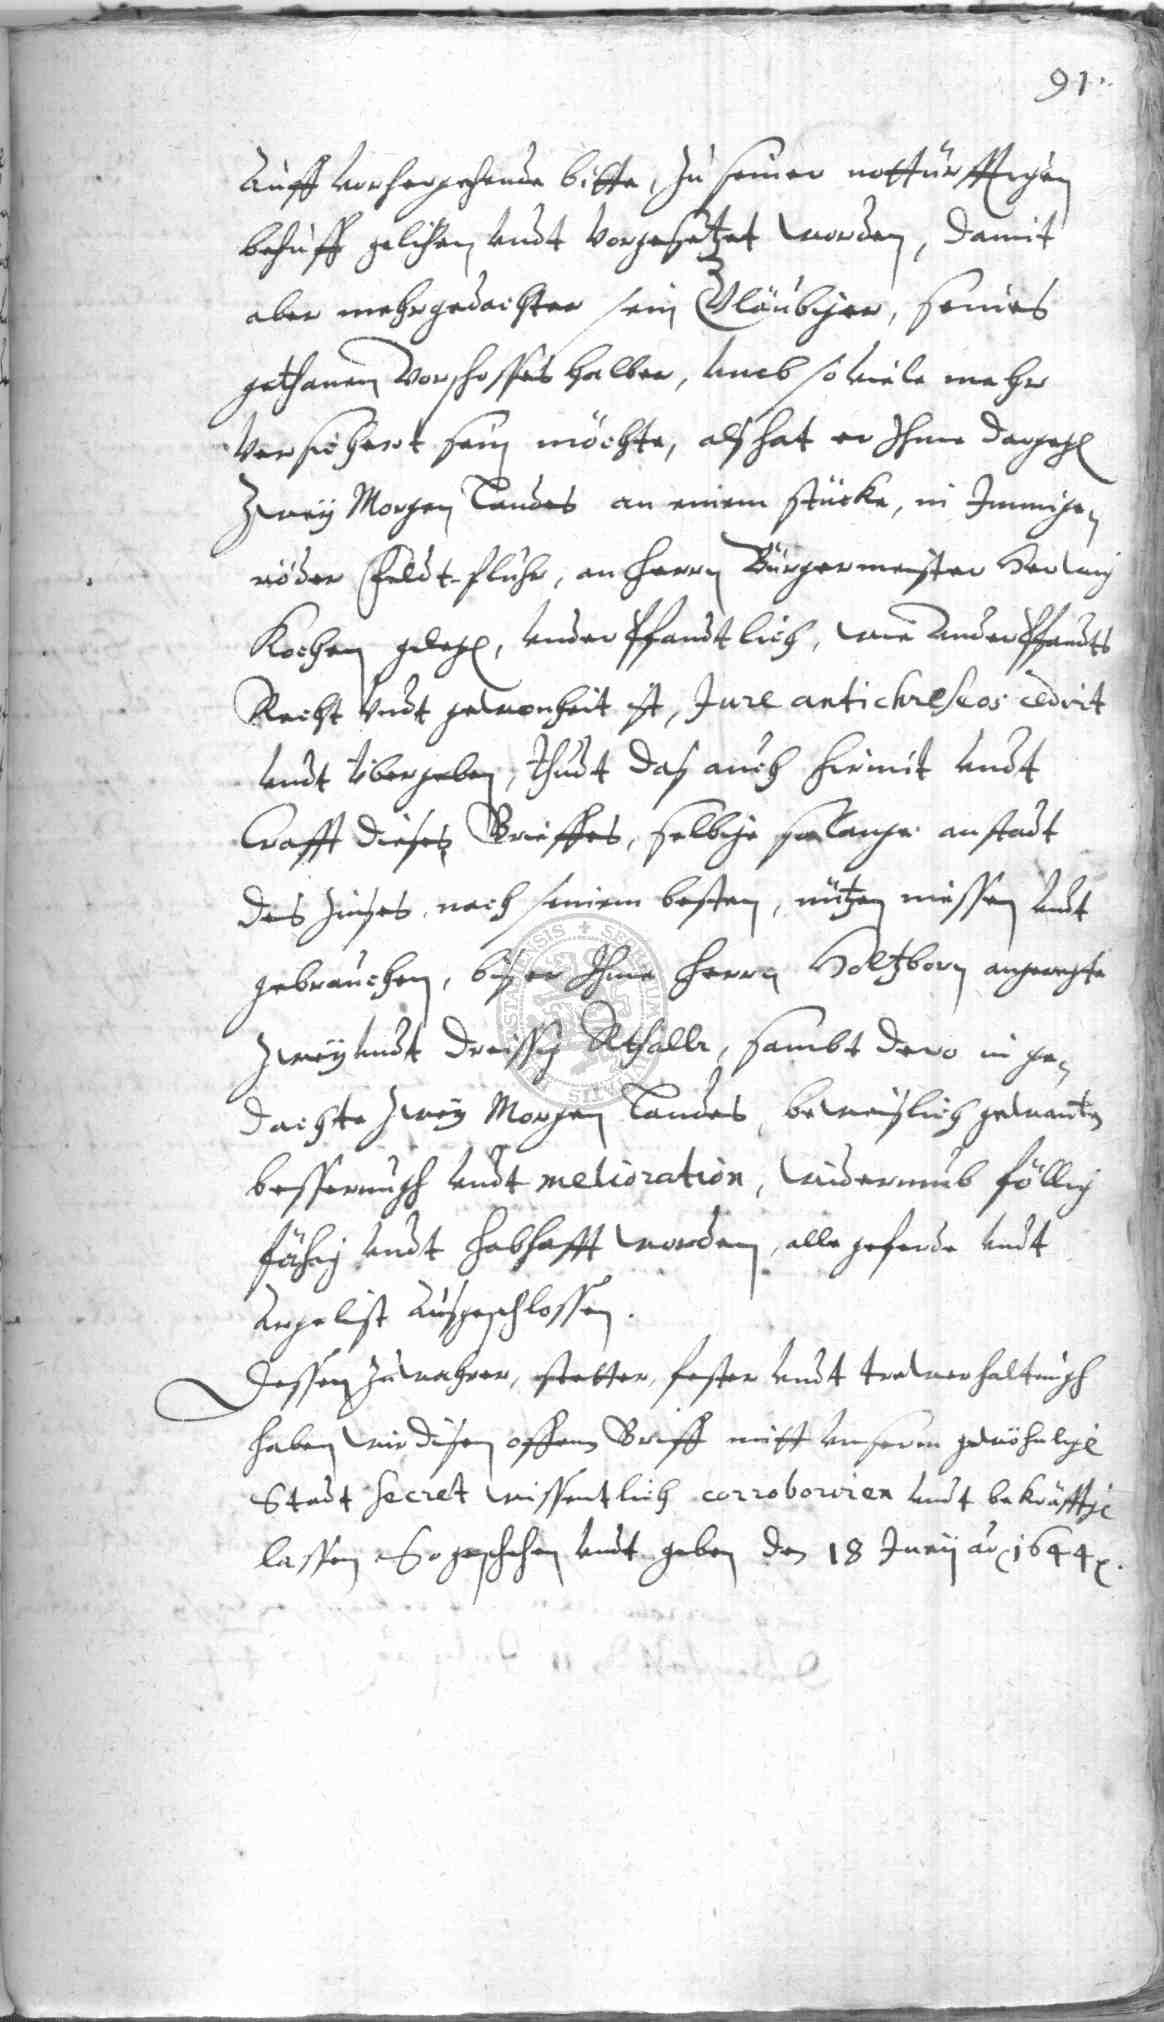 91.
Auff vorhergehende bitte, zu seiner nottürfftigen
behuff gelihen undt vorgesetzet worden, damit
aber mehrgedachter sein Gläubiger, seines
gethanen Vorschosses halber, umb so viele mehr
versichert sein möchte, alß hat er Ihme dargegen
Zweÿ Morgen Landes an einem stücke, in Immige,
röder Feldt-fluhr, an Herrn Bürgermeister
Kochen gelegen, underpfandtlich, wie underpfandts
Recht undt gewonheit ist, Jure antichreseos cedirt
undt übergeben, Thudt daß auch hirmit undt
Crafft dieses Brieffes, selbige so lange anstadt
des Zinses nach seinem besten, nützen niessen undt
gebrauchen, biß er Ihme Herrn Holtzborn angeregte
Zweÿ undt dreissig Rthallr, sambt dero in ge,
dachte Zweÿ Morgen Landes beweißlich gewante
besserungh undt melioration, widerumb föllig
fähig undt habhafft worden, alle geferde undt
Argelist außgeschlossen.
Dessen zu wahrer, stetter, fester undt trewer haltungh
haben wir disen offenen Briff mitt unserm gewöhnlige
Stadt Secret wissentlich corroboriren undt bekräfftige
lassen So geschehen undt geben den 18 Junÿ ao 1644